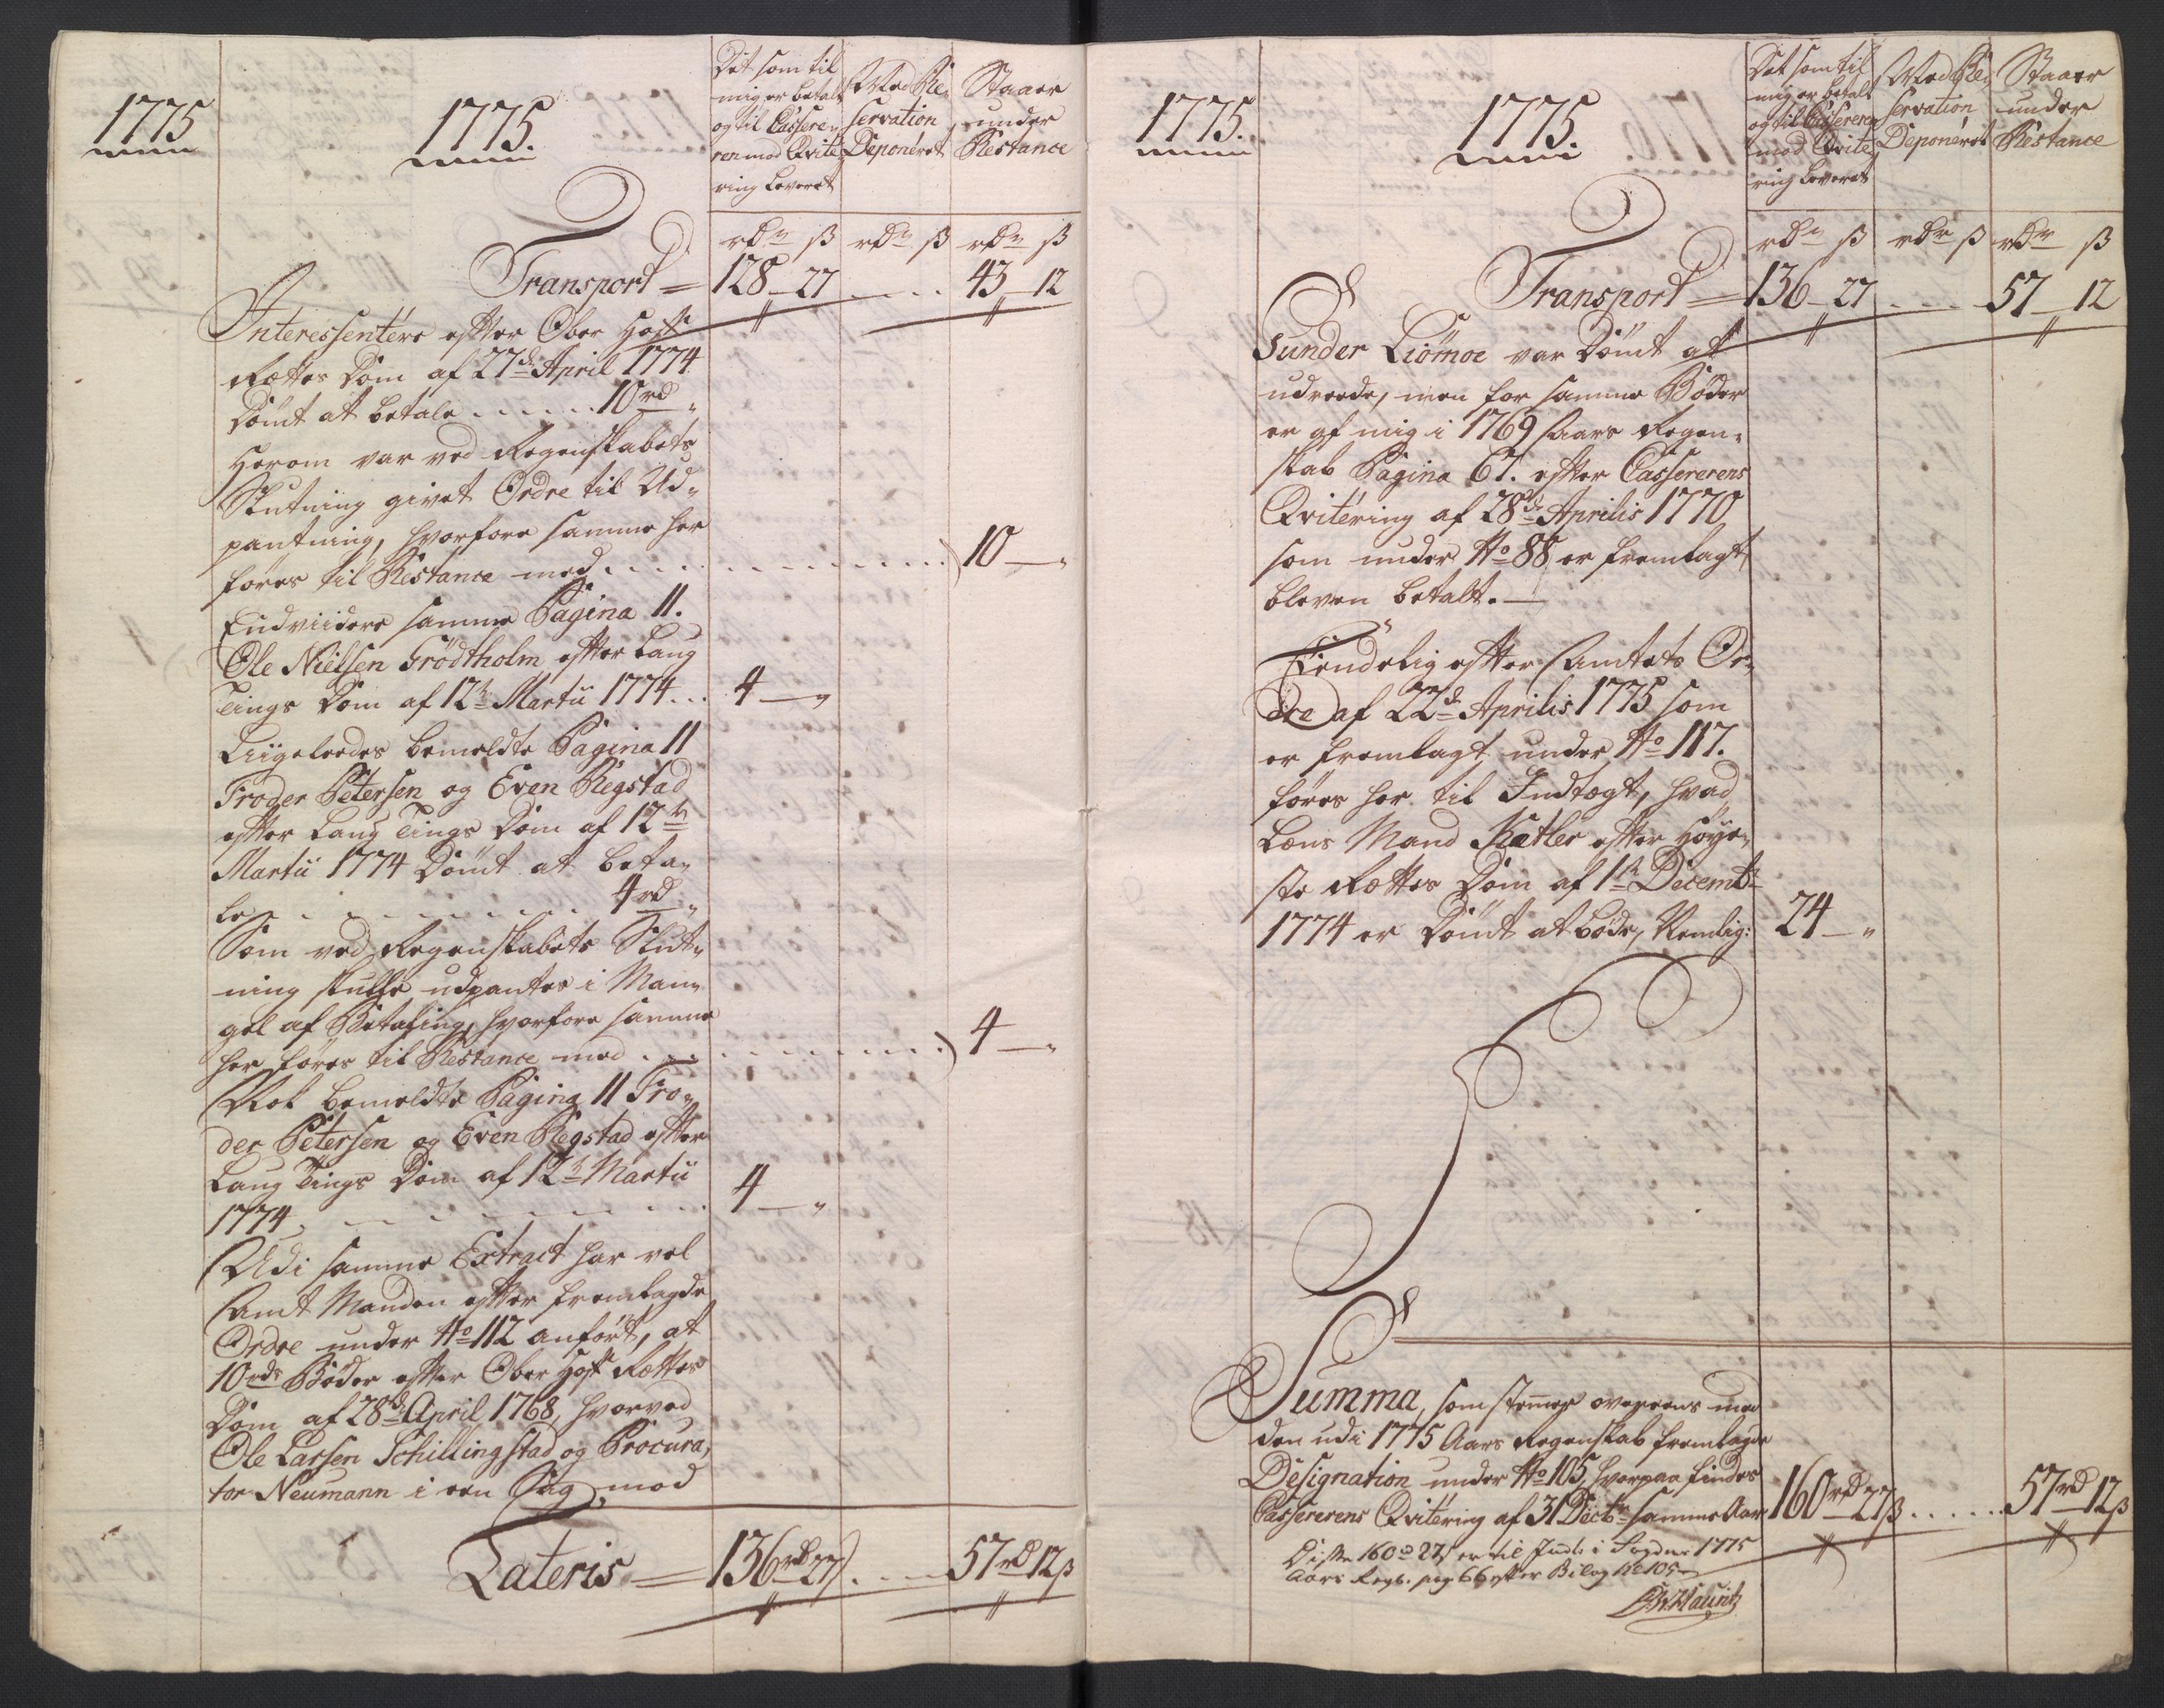 1775
1775.
Det som til
mig er betalt
og til Casserer-
ren mod Qvite-
ring leveret
Med Re-
servation
Deponeret
Staaer
under
Restance
rdr ß rdr ß rdr ß
Transport = 128 – 27 . . . . 43 – 12
Interessentere efter Ober Hoff
Rættes Dom af 27de April 1774
Dömt at betale . . . . . . 10 rd "
Herom var ved Regenskabets
Slutning givet Ordre til Ud-
pantning, hvorfore samme her
föres til Restance med . . . . . . . . . . 10 – "
Endviidere samme Pagina 11.
Ole Nielsen Grödtholm efter Laug
Tings Dom af 12te Martii 1774 . . . 4 – "
Liigeleedes bemeldte Pagina 11
Troder Petersen og Even Regstad
efter Laug Tings Dom af 12te
Martii 1774 Dömt at beta-
le . . . . . . . . . 4 rd "
Som ved Regenskabets Slut-
ning skulle udpantes i Man-
gel af Betaling, hvorfore samme
her föres til Restance med . . . . . . . . . 4 – "
Nok bemeldte Pagina 11 Tro-
der Petersen og Even Regstad efter
Laug Tings Dom af 12te Martii
1774 . . . . . . . . 4 – "
Udi samme Extract har vel
Amt Manden efter fremlagde
Ordre under No 112 anfört, at
10 rdr Böder efter Ober Hof Rættes
Dom af 28de April 1768, hvorved
Ole Larsen Schillingstad og Procura-
tor Neumann i een Sag mod
Lateris = 136 rd 27 ß . . . . 57 rd 12 ß
1775.
1775.
Det som til
mig er betalt
og til Cassereren
mod Qvite-
ring leveret
Med Re-
servation
Deponeret
Staaer
under
Restance
rdr ß rdr ß rdr ß
Transport = 136 – 27 . . . . 57 – 12
Gunder Liömoe var Dömt at
udreede, men for samme Böder
er af mig i 1769 Aars Regen-
skab Pagina 67. efter Cassererens
Qvitering af 28de Aprilis 1770
som under No 88 er fremlagt
bleven betalt. –
Eendelig efter Amtets Or-
dre af 22de Aprilis 1775 som
er fremlagt under No 117.
föres her til Indtægt, hvad
Lens Mand Kætler efter Höye-
ste Rættes Dom af 1te Decembr
1774 er Dömt at böde, Nemlig: 24 – "
Summa, som stemmer overeens med
den udi 1775 Aars Regenskab fremlagde
Designation under No 105, hvorpaa findes
Cassererens Qvitering af 31 Decbr samme Aar 160 rd 27 ß . . . . . . 57 rd 12 ß
Disse 160 rd 27 ß er til Indt. i 1775
Aars Regb. pag 66 efter Bilag No 105